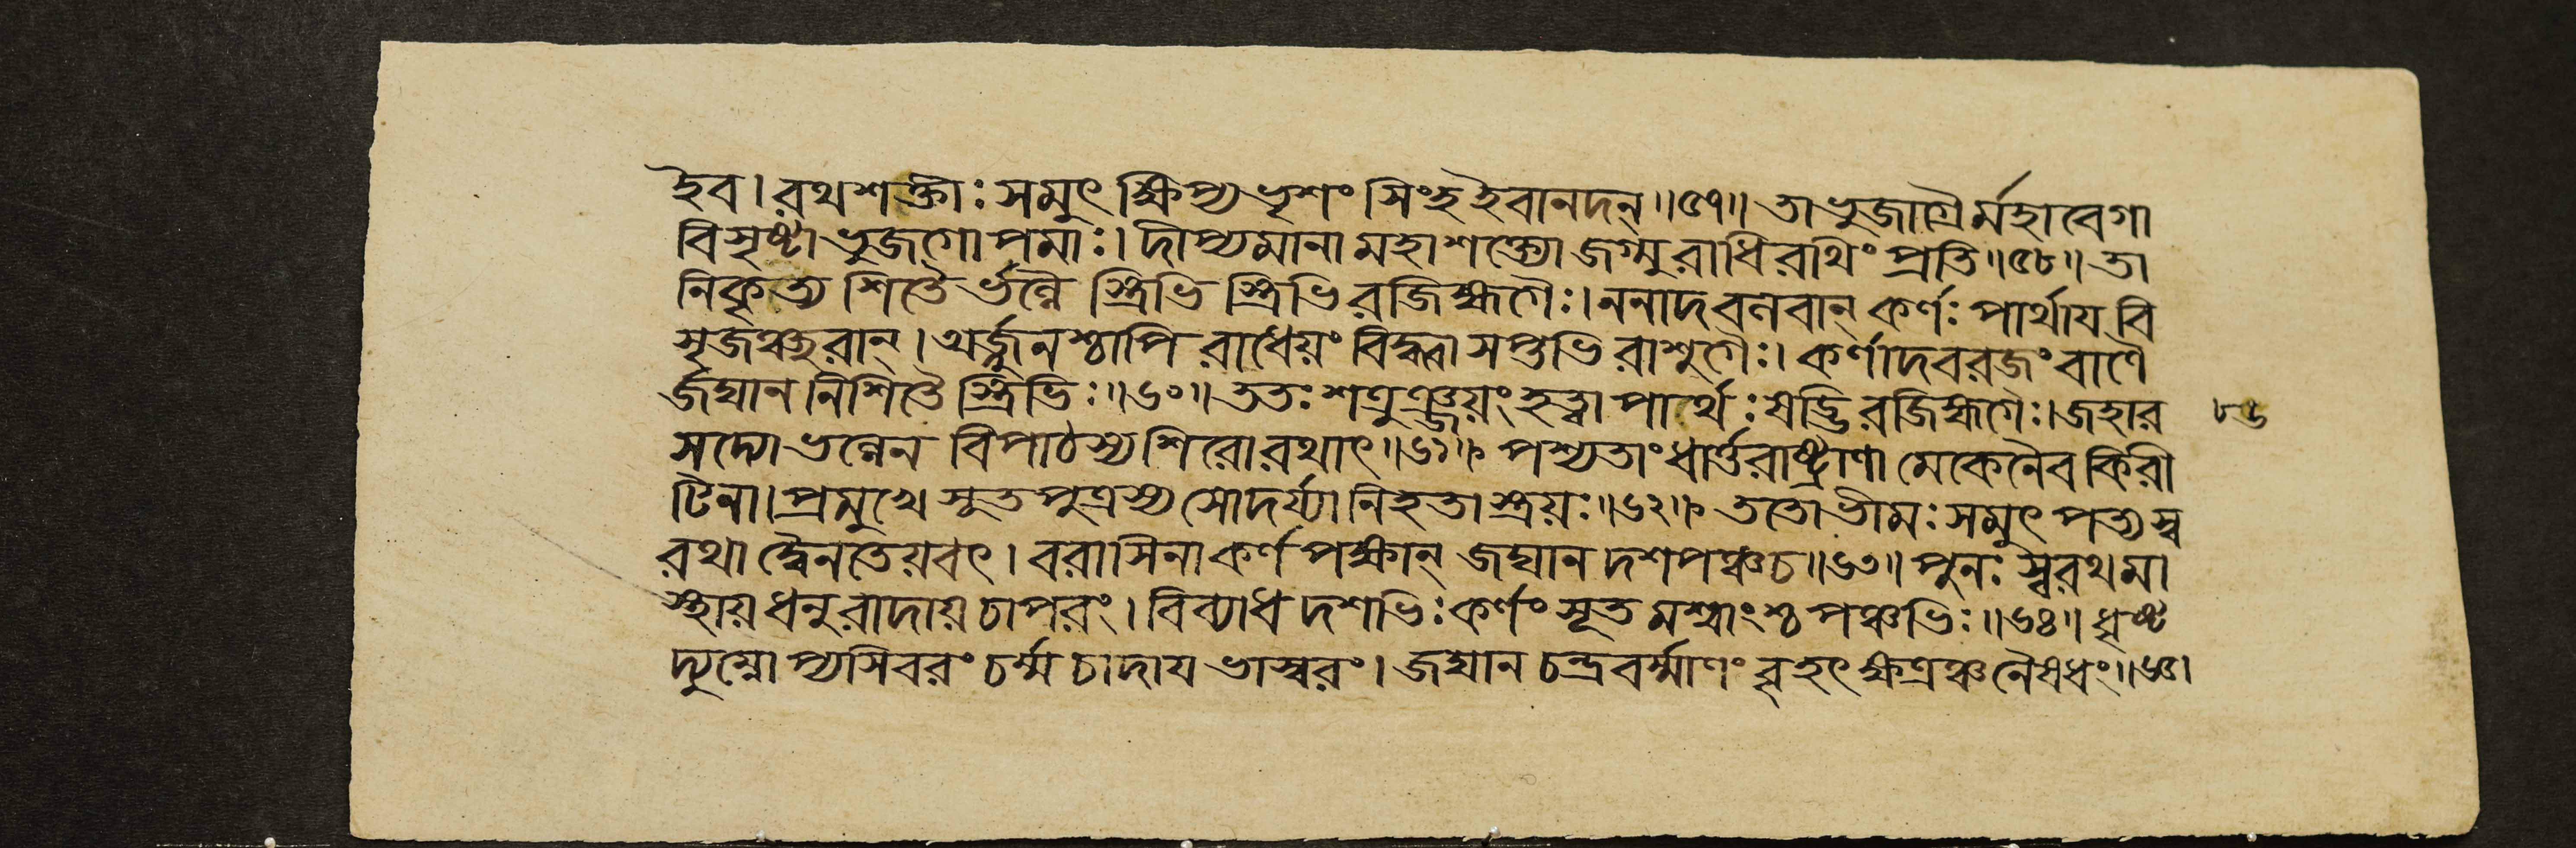 ইব। রথশক্তীঃ সমুৎক্ষিপ্য ভৃশং সিংহ ইবানদন্॥৫৭॥ তা ভুজাগ্রৈর্মহাবেগা
বিসৃষ্টা ভুজগোপমাঃ। দীপ্যমানা মহাশক্ত্যো জগ্মুরাধিরথিং প্রতি॥৫৮॥ তা
নিকৃত্য শিতৈর্ভল্লৈ স্ত্রিভি স্ত্রিভিরজিহ্মগৈঃ। ননাদ বলবান্ কর্ণঃ পার্থায বি
সৃজঞ্ছরান্। অর্জ্জুনশ্চাপি রাধেয়ং বিদ্ধ্বা সপ্তভিরাশুগৈঃ। কর্ণাদবরজং বাণৈ
র্জঘান নিশিতৈ স্ত্রিভিঃ॥৬০॥ ততঃ শত্রুঞ্জয়ং হত্বা পার্থঃ ষড্ভিরজিহ্মগৈঃ। জহার
সদ্যো ভল্লেন বিপাঠস্য শিরো রথাৎ॥৬১॥ পশ্যতাং ধার্ত্তরাষ্ট্রাণামেকেনৈব কিরী
টিনা। প্রমুখে সূতপুত্রস্য সোদর্য্যা নিহতাস্ত্রয়ঃ॥৬২॥ ততো ভীমঃ সমুৎপত্য স্ব
রথাদ্বৈনতেয়বৎ। বরাসিনা কর্ণপক্ষান্ জঘান দশপঞ্চ চ॥৬৩॥ পুনঃ স্বরথমা
স্থায় ধনুরাদায় চাপরং। বিব্যাধ দশভিঃ কর্ণং সূতমশ্বাংশ্চ পঞ্চভিঃ॥৬৪॥ ধৃষ্ট
দ্যুম্নোপ্যসিবরং চর্ম্ম চাদায ভাস্বরং। জঘান চন্দ্রবর্ম্মাণং বৃহৎক্ষত্রঞ্চ নৈষধং॥৬৫।